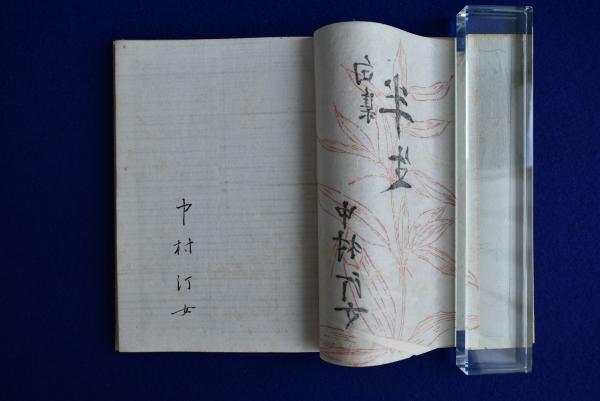 句集
半生
中村汀女
中村汀女